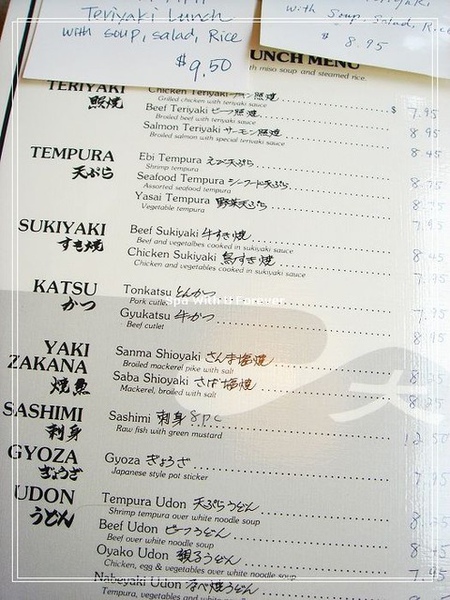 Teriyaki Lunch
with soup, salad, Rice
$9.50
with Soup, Salad, Rice
$ 8.95
UNCH MENU
with miso soup and steamed rice.
TERIYAKI
照焼
Chicken Teriyaki チキン照焼
Grilled chicken with teriyaki sauce
$ 7.95
Beef Teriyaki ビーフ照焼
Broiled beef with teriyaki sauce
8.95
Salmon Teriyaki サーモン照焼
Broiled salmon with special teriyaki sauce
8.45
TEMPURA
天ぷら
Ebi Tempura えび天ぷら
Shrimp tempura
Seafood Tempura シーフード天ぷら
Assorted seafood tempura
Yasai Tempura 野菜天ぷら
Vegetable tempura
7.95
SUKIYAKI
すき焼
Beef Sukiyaki 牛すき焼
Beef and vegetalbes cooked in sukiyaki sauce
8.45
Chicken Sukiyaki 鳥すき焼
Chicken and vegetables cooked in sukiyaki sauce
7.95
KATSU
かつ
Tonkatsu とんかつ
Pork cutlet
Gyukatsu 牛かつ
Beef cutlet
Spa With U Forever
YAKI
ZAKANA
焼魚
Sanma Shioyaki さんま塩焼
Broiled mackerel pike with salt
Saba Shioyaki さば塩焼
Mackerel, broiled with salt
SASHIMI
刺身
Sashimi 刺身 8pc
Raw fish with green mustard
12.50
GYOZA
ぎょうざ
Gyoza ぎょうざ
Japanese style pot sticker
7.95
UDON
うどん
Tempura Udon 天ぷらうどん
Shrimp tempura over white noodle soup
8.45
Beef Udon ビーフうどん
Beef over white noodle soup
8.45
Oyako Udon 親子うどん
Chicken, egg & vegetables over white noodle soup
7.95
Nabeyaki Udon なべ焼うどん
Tempura, vegetables and